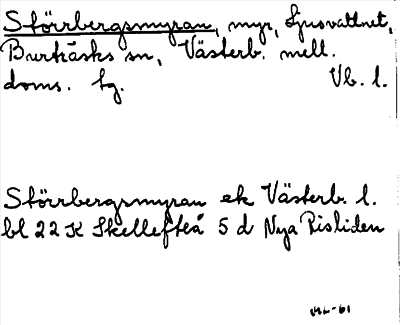 Störrbergsmyran, myr, Ljusvattnet,
Burträsks sn, Västerb. mell.
doms. tg. Vb. l.
Störrbergsmyran ek Västerb. l.
bl 22 K Skellefteå 5 d Nya Risliden